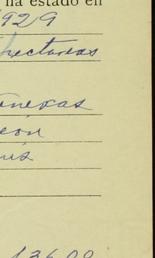 ha estado en
1929
hectareas
anexas
eon
us
13600